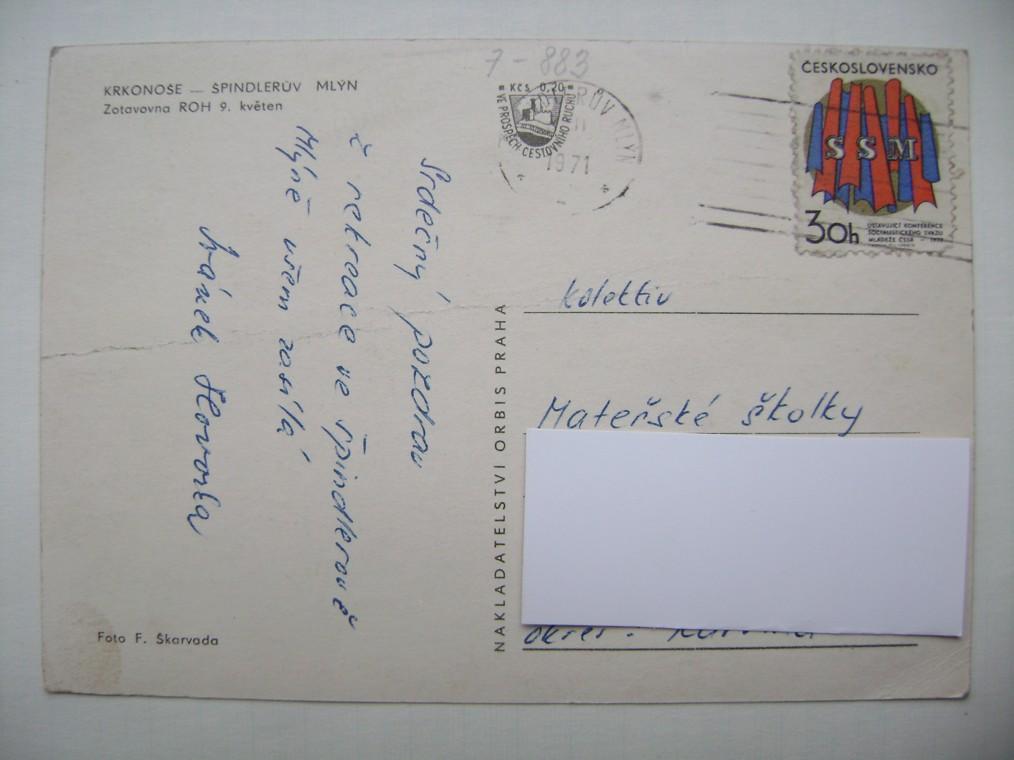 KRKONOŠE — ŠPINDLERŮV MLÝN
Zotavovna ROH 9. květen
7-883
Kčs 0,20
VE PROSPĚCH CESTOVNÍHO RUCHU
RŮV MLÝN
1971
ČESKOSLOVENSKO
SSM
30h
USTAVUJÍCÍ KONFERENCE
SOCIALISTICKÉHO SVAZU
MLÁDEŽE ČSSR
Srdečný pozdrav
z rekreace ve Špindlerově
Mlýně všem zasílá
Hovorka
NAKLADATELSTVÍ ORBIS PRAHA
Kolektiv
Mateřské školky
okres:
Foto F. Škarvada